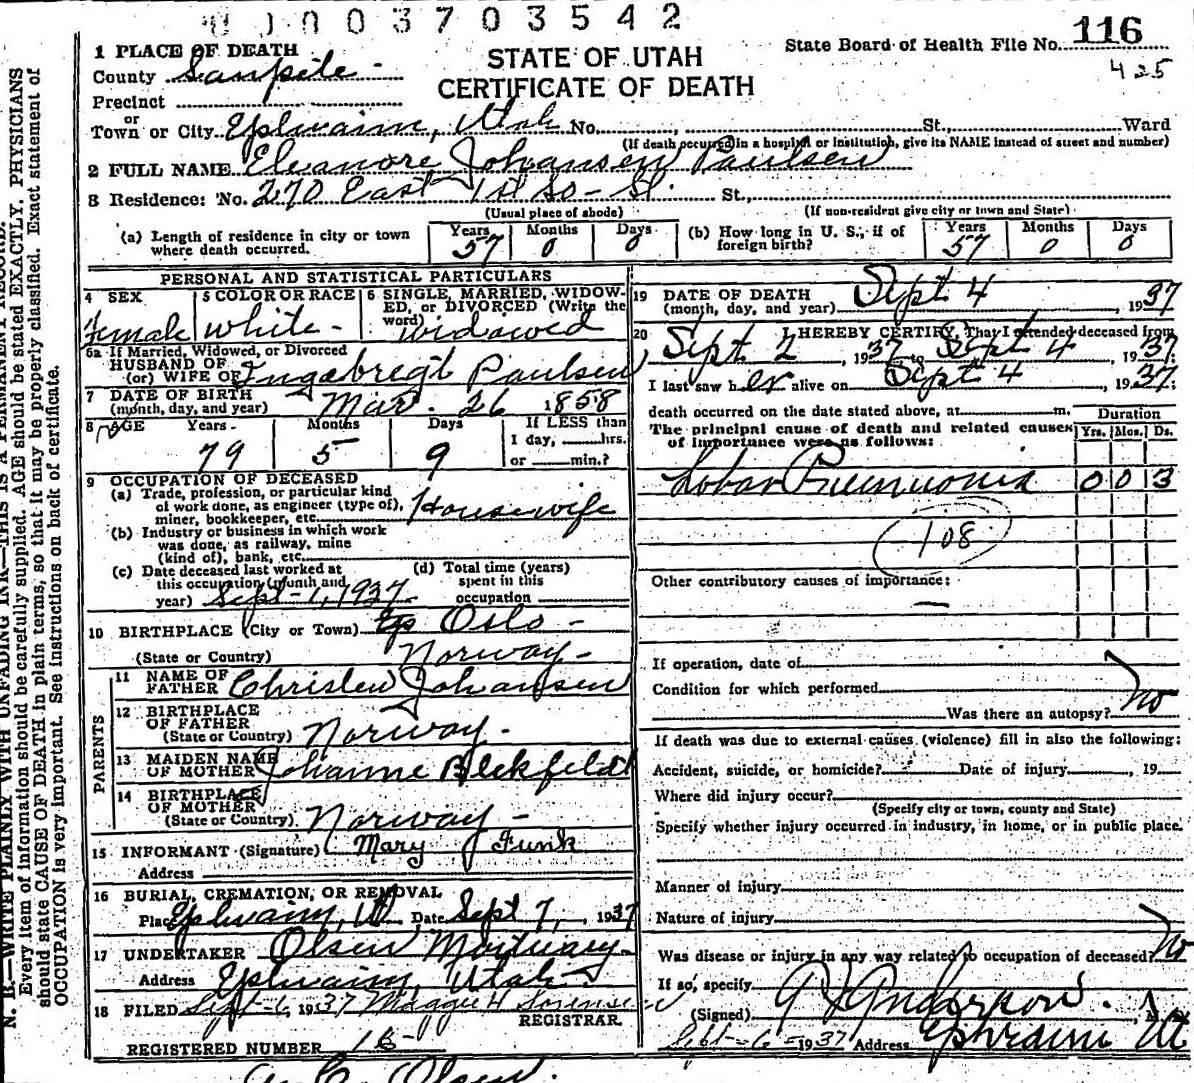 0003703542
1 PLACE OF DEATH
County Sanpete
Precinct
or
Town or City Ephraim, Utah No. , St., Ward
STATE OF UTAH
CERTIFICATE OF DEATH
State Board of Health File No. 116
425
(If death occurred in a hospital or institution, give its NAME instead of street and number)
2 FULL NAME Eleanore Johansen Paulsen
3 Residence: No. 270 East 1st So - St. St.,
(Usual place of abode) (If non-resident give city or town and State)
(a) Length of residence in city or town where death occurred. Years 57 Months 0 Days 0
(b) How long in U. S., if of foreign birth? Years 57 Months 0 Days 0
PERSONAL AND STATISTICAL PARTICULARS
4 SEX
female
5 COLOR OR RACE
white -
6 SINGLE, MARRIED, WIDOWED, or DIVORCED (Write the word)
widowed
6a If Married, Widowed, or Divorced
HUSBAND OF
(or) WIFE OF Ingabregt Paulsen
7 DATE OF BIRTH
(month, day, and year) Mar. 26 1858
8 AGE Years Months Days If LESS than
79 5 9
1 day, hrs.
or min.?
9 OCCUPATION OF DECEASED
(a) Trade, profession, or particular kind
of work done, as engineer (type of),
miner, bookkeeper, etc. Housewife
(b) Industry or business in which work
was done, as railway, mine
(kind of), bank, etc.
(c) Date deceased last worked at
this occupation (month and
year) Sept - 1, 1937
(d) Total time (years)
spent in this
occupation
10 BIRTHPLACE (City or Town) Oslo -
(State or Country) Norway -
PARENTS
11 NAME OF
FATHER Christen Johansen
12 BIRTHPLACE
OF FATHER
(State or Country) Norway -
13 MAIDEN NAME
OF MOTHER Johanne
14 BIRTHPLACE
OF MOTHER
(State or Country) Norway -
15 INFORMANT (Signature) Mary J Funk
Address
16 BURIAL, CREMATION, OR REMOVAL
Place Ephraim, Ut Date Sept 7, 1937
17 UNDERTAKER Olsen Mortuary -
Address Ephraim, Utah -
18 FILED Sept - 6, 1937 Maggie H Sorensen
REGISTRAR
REGISTERED NUMBER
Olsen.
19 DATE OF DEATH
(month, day, and year) Sept 4, 1937
20 I HEREBY CERTIFY, That I attended deceased from
Sept 2, 1937 to Sept 4, 1937;
I last saw her alive on Sept 4, 1937;
death occurred on the date stated above, at m.
The principal cause of death and related causes
of importance were as follows:
Duration
Yrs. Mos. Ds.
Lobar Pneumonia 0 0 3
108
Other contributory causes of importance:
—
If operation, date of
Condition for which performed
Was there an autopsy? No
If death was due to external causes (violence) fill in also the following:
Accident, suicide, or homicide? Date of injury , 19
Where did injury occur?
(Specify city or town, county and State)
Specify whether injury occurred in industry, in home, or in public place.
Manner of injury
Nature of injury
Was disease or injury in any way related to occupation of deceased? No
If so, specify
(Signed) Anderson.
Sept - 6 - 1937 Address Ephraim Ut
N. B.—WRITE PLAINLY WITH UNFADING INK—THIS IS A PERMANENT RECORD.
Every item of information should be carefully supplied. AGE should be stated EXACTLY. PHYSICIANS
should state CAUSE OF DEATH in plain terms, so that it may be properly classified. Exact statement of
OCCUPATION is very important. See instructions on back of certificate.